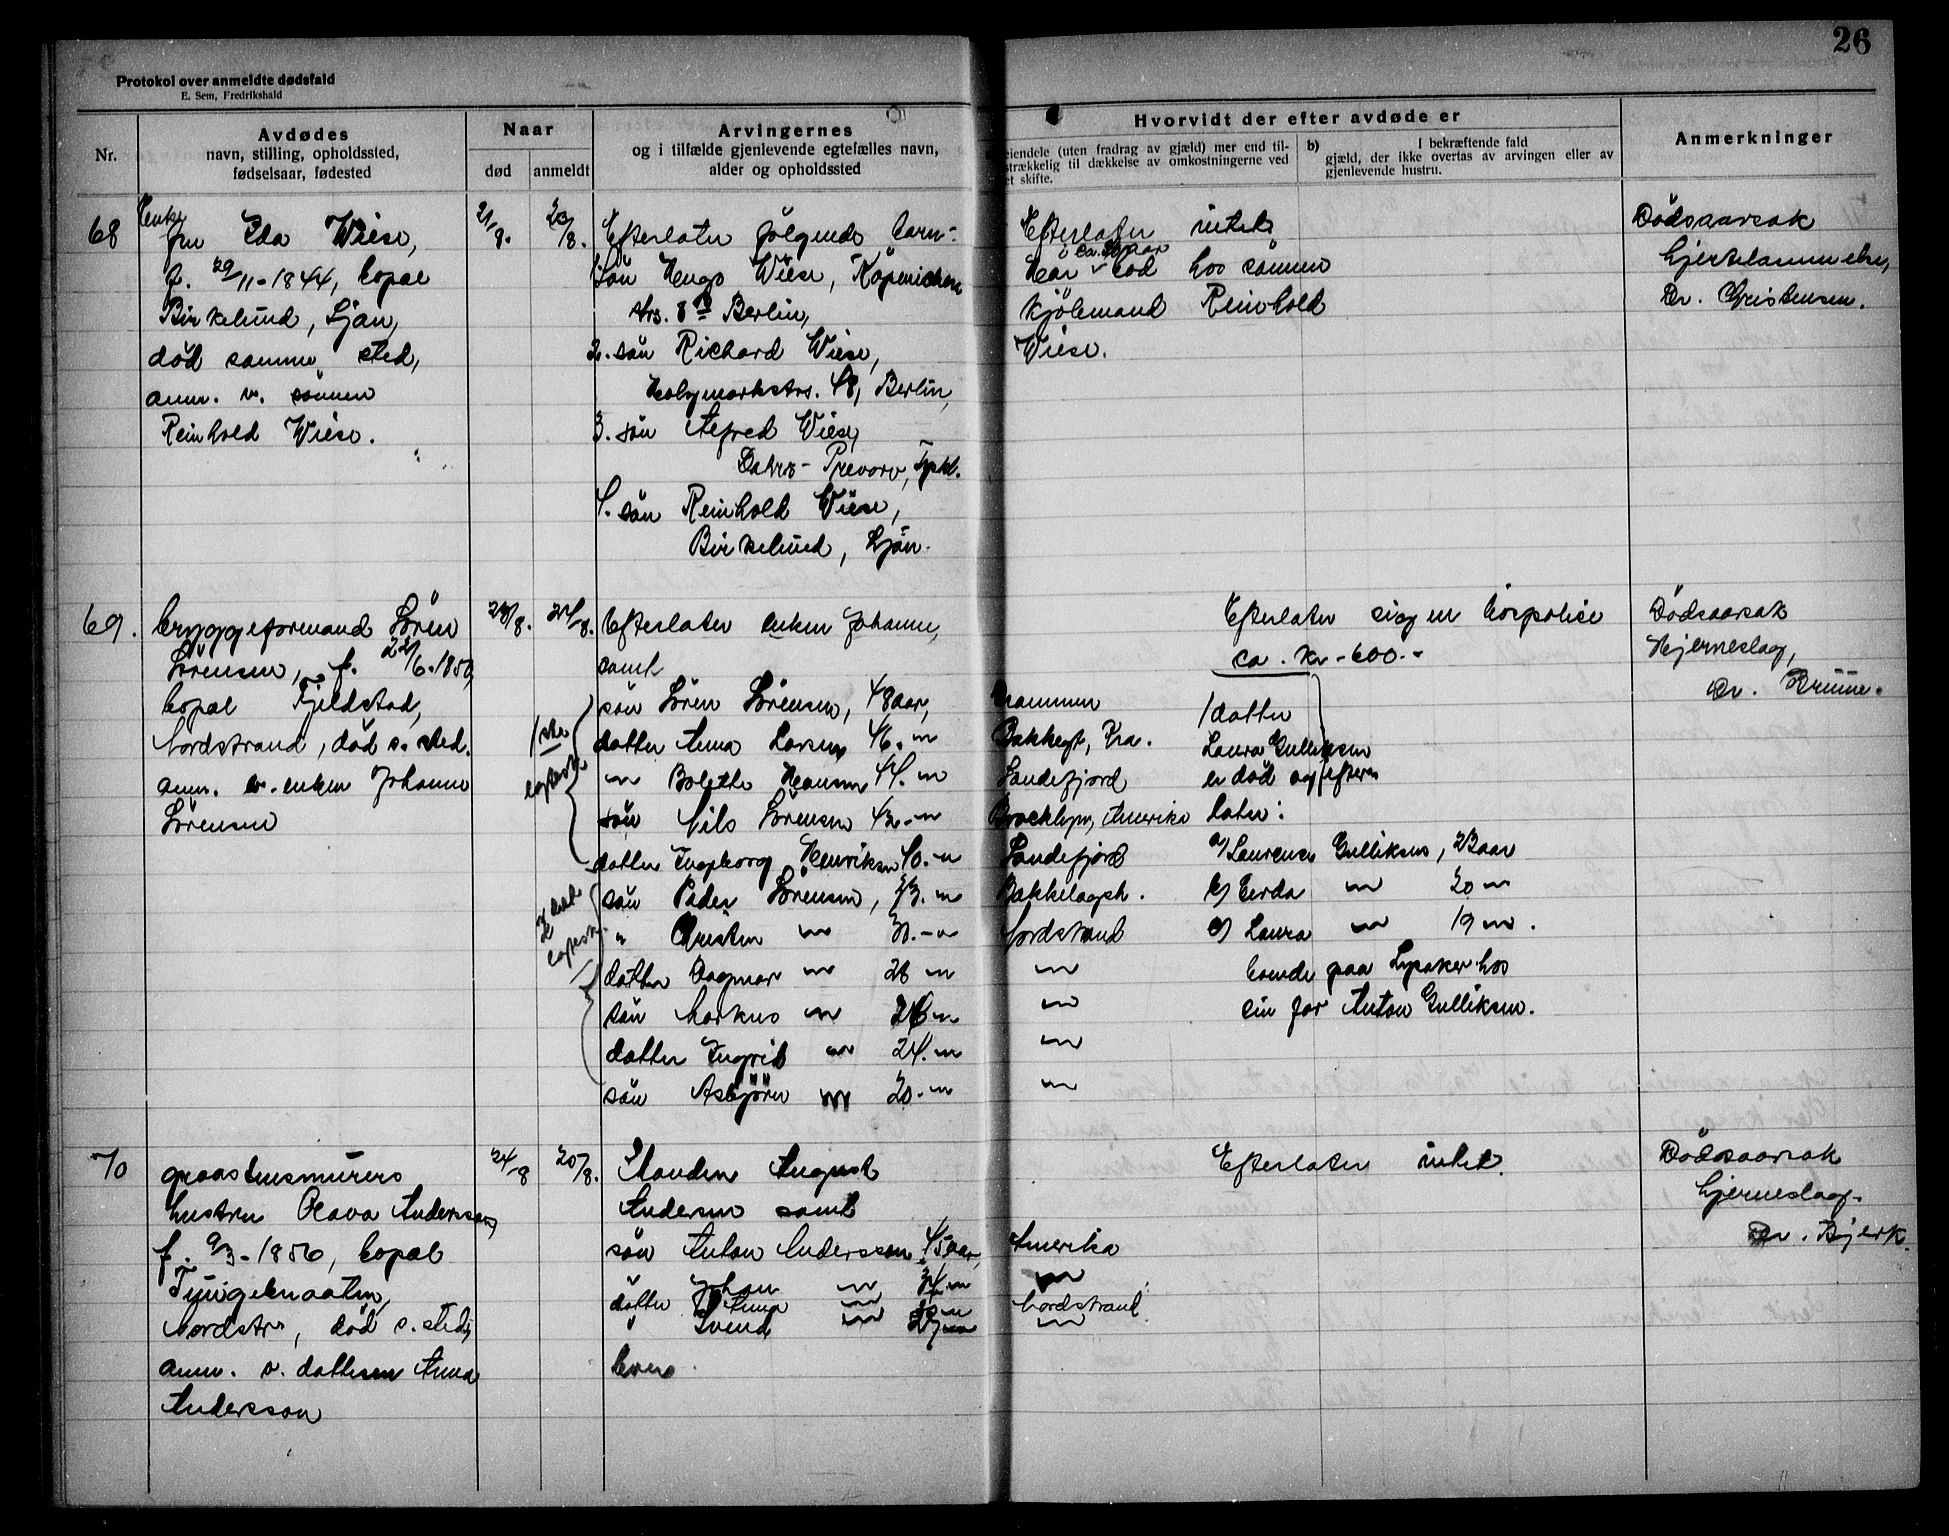 26
Protokol over anmeldte dødsfald
E. Sem, Fredrikshald
Nr.
Avdødes
navn, stilling, opholdssted,
fødselsaar, fødested
Naar
død
anmeldt
Arvingernes
og i tilfælde gjenlevende egtefælles navn,
alder og opholdssted
Hvorvidt der efter avdøde er
eiendele (uten fradrag av gjæld) mer end til-
strækkelig til dækkelse av omkostningerne ved
et skifte.
b) I bekræftende fald
gjæld, der ikke overtas av arvingen eller av
gjenlevende hustru.
Anmerkninger
68
Enke
fru Ida Wiese,
f. 29/11-1844, bopæl
Birkelund, Ljan,
død samme sted,
anm. v. sønnen
Reinhold Wiese.
21/8.
23/8.
Efterlater følgende barn:
1. søn Hugo Wiese, Köpenicker
strs. 8 Berlin,
2. søn Richard Wiese,
Holzmarkstrs. 48, Berlin,
3. søn Alfred Wiese,
Prevorv, Tyskl.
4. søn Reinhold Wiese,
Birkelund, Ljan.
Efterlater intet
i ca. aar
Har bod hos sønnen
kjølemand Reinhold
Wiese.
Dødsaarsak
hjertelammelse,
Dr. Christensen.
69.
bryggeformand Sören
Sörensen, f. 22/6-1850,
bopæl Fjeldstad,
Nordstrand, død s. sted.
anm. av enken Johanne
Sörensen
23/8.
24/8.
Efterlater enken Johanne,
samt
1ste
egtesk.
søn Sören Sörensen, 48 aar, Drammen
datter Anna Larsen 46. " Bakkegt, Kra.
" Bolette Hansen 44. " Sandefjord
søn Nils Sörensen 42. " Brooklyn, Amerika
datter Ingeborg Henriksen 40. " Sandefjord
2det
egtesk.
søn Peder Sörensen, 33. " Bakkelagsh.
" Kristen " 30. " Nordstrand
datter Dagmar " 28 " "
søn Markus " 26 " "
datter Ingrid " 24. " "
søn Asbjörn " 20. " "
Efterlater sig en livspolise
ca. kr. 600.-
1 datter
Laura Gulliksen
er død og efter-
later:
a/ Laurence Gulliksen, 23 aar
b/ Gerda " 20 "
c/ Laura " 19 ".
boende paa Lysaker hos
sin far Anton Gulliksen.
Dødsaarsak
Hjerneslag,
Dr. Bruun.
70
graastensmurers
hustru Olava Andersson,
f. 9/3-1856, bopæl
Nordstr., død s. sted,
anm. v. datteren Anna
Andersson
24/8
25/8.
Manden August
Andersen samt
søn Anton Andersson 45 aar, Amerika
" Johan " 34 " "
datter Anna " " Nordstrand
" Svend " " "
Efterlater intet.
Dødsaarsak
hjerneslag.
Dr. Bjerk.